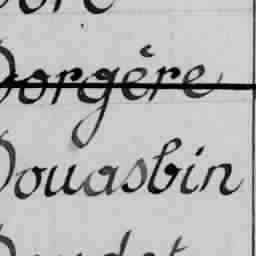 Dorgère
Douasbin